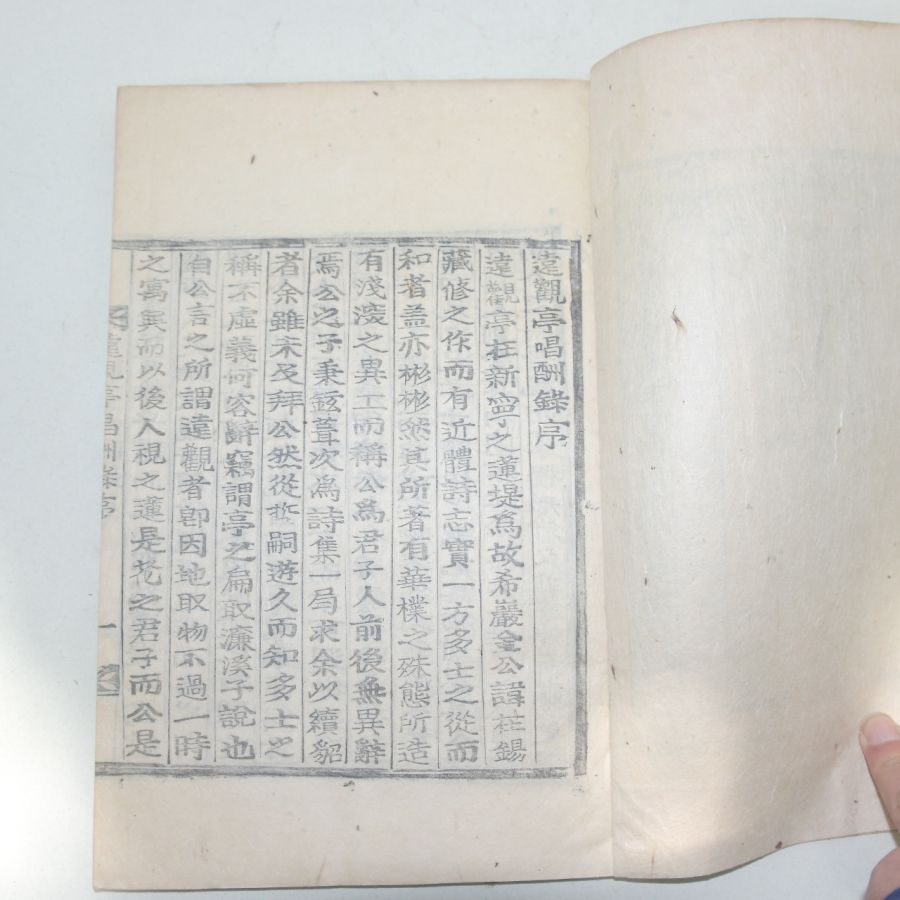 遠觀亭唱酬錄序
遠觀亭在新寧之蓮堤爲故希巖金公諱在錫
藏修之作而有近體詩志實一方多士之從而
和者盖亦彬彬然其所著有華樸之殊態所造
有淺深之異工而稱公爲君子人前後無異辭
焉公之子秉鉉葺次為詩集一局求余以續貂
者余雖未及拜公然從哲嗣遊久而知多士之
稱不虛義何容辭竊謂亭之扁取濂溪子說也
自公言之所謂遠觀者卽因地取物不過一時
之寓興而以後人視之蓮是花之君子而公是
遠觀亭唱酬錄序
一